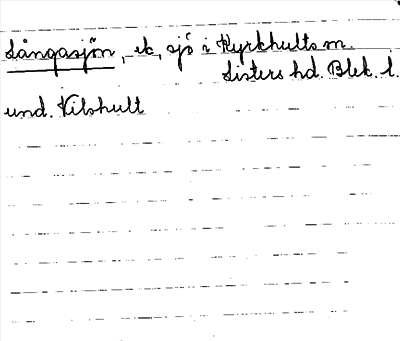 Långasjön, ek, sjö i Kyrkhults sn.
Listers hd. Blek. l.
und. Vilshult